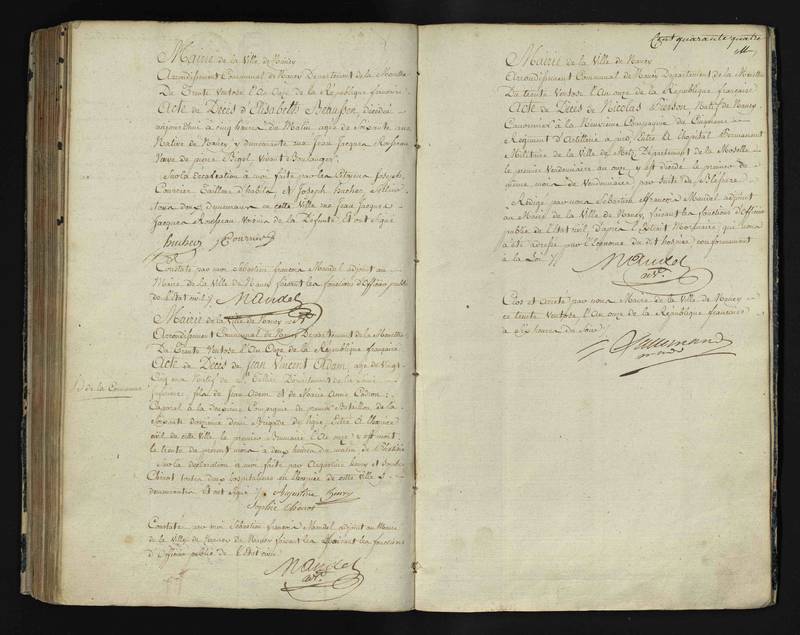 Mairie de la Ville de Nancy
Arrondissement Communal de Nancy Département de la Meurthe
Du Trente Ventose l'An Onze de la République française
Acte de Décès d'Elisabeth Beausson, décédée
aujourd'hui à cinq heures du Matin, agée de soixante ans
Native de Nancy y demeurante rue Jean Jacques Rousseau
Veuve de pierre Bagol, vivant Boulanger
Sur la Déclaration à moi faite par les Citoyens Joseph
Tailleur d'habits et Joseph
tous deux demeurans en cette Ville rue Jean Jacques
Jacques Rousseau Voisins de la Défunte, Et ont signé
Constaté par moi Sébastien françois Mandel adjoint au
Maire de la Ville de Nancy faisant les fonctions d'Officier public
de l'Etat civil
Mandel
Mairie de la Ville de Nancy
Arrondissement Communal de Nancy Département de la Meurthe
Du Trente Ventose l'An Onze de la République française
Acte de Décès de Jean Vincent Adam, agé de Vingt
Cinq ans Natif de Département de la Seine
inférieure fils de Jean Adam et de Marie Anne
de la Commune
Caporal à la Compagnie du premier Bataillon de la
Soixante demi Brigade de ligne, Entré à l'hospice
civil de cette Ville le premier Brumaire l'An onze y est mort
le trente du présent mois à deux heures du matin
Sur la déclaration à moi faite par Augustine henry et Sophie
toutes deux hospitalières en l'hospice de cette Ville y
demeurantes Et ont signé Augustine henry
Sophie
Constaté par moi Sébastien françois Mandel adjoint au Maire
de la Ville de Nancy faisant les fonctions
d'Officier public de l'Etat civil
Mandel
adj.
Cent quarante quatre
Mairie de la Ville de Nancy
Arrondissement Communal de Nancy Département de la Meurthe
Du trente Ventose l'An onze de la République française
Acte de Décès de Nicolas Pierson Natif de Nancy
Canonnier à la Neuvième Compagnie du Cinquième
Régiment d'Artillerie à pied, Entré à l'hôpital Permanent
Militaire de la Ville de Metz Département de la Moselle
le premier Vendemiaire an onze, y est décédé le premier du
même mois de Vendemiaire par suite de
Rédigé par nous Sébastien françois Mandel adjoint
au Maire de la Ville de Nancy, faisant les fonctions d'Officier
public de l'Etat Civil, d'après l'Extrait Mortuaire qui nous
a été adressé par l'Econome du dit hospice conformément
à la Loi
Mandel
adj.
Clos et arrêté par nous Maire de la Ville de Nancy
ce trente Ventose l'An onze de la République française
à six heures du Soir
Lallemand